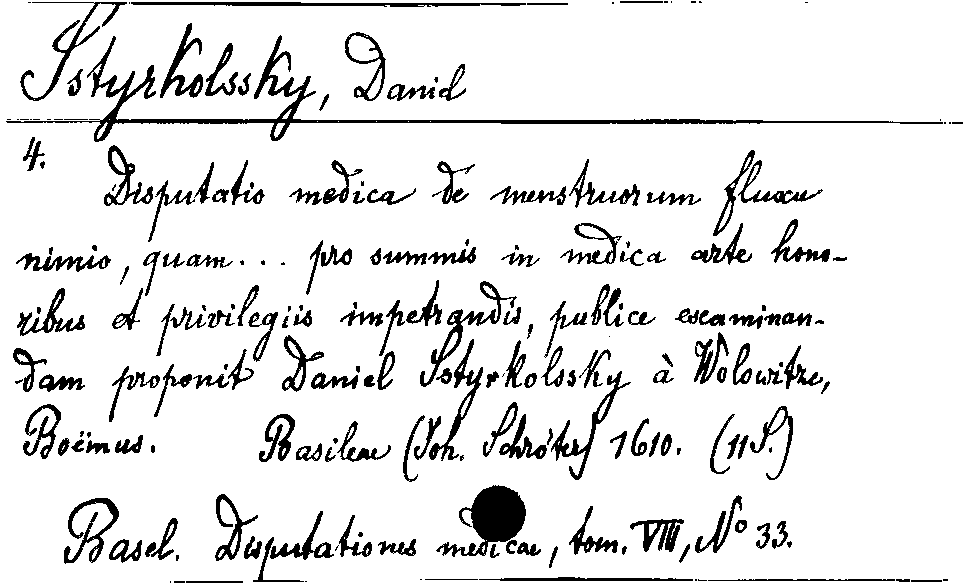 Sstyrkolssky, Daniel
4.
Disputatio medica de menstruorum fluxu
nimio, quam... pro summis in medica arte hono-
ribus et privilegiis impetrandis, publice examinan-
dam proponit Daniel Sstyrkolssky à Wolowitze,
Boëmus. Basileae (Joh. Schröter) 1610. (11 S.)
Basel. Disputationes medicae, tom. VIII, No 33.